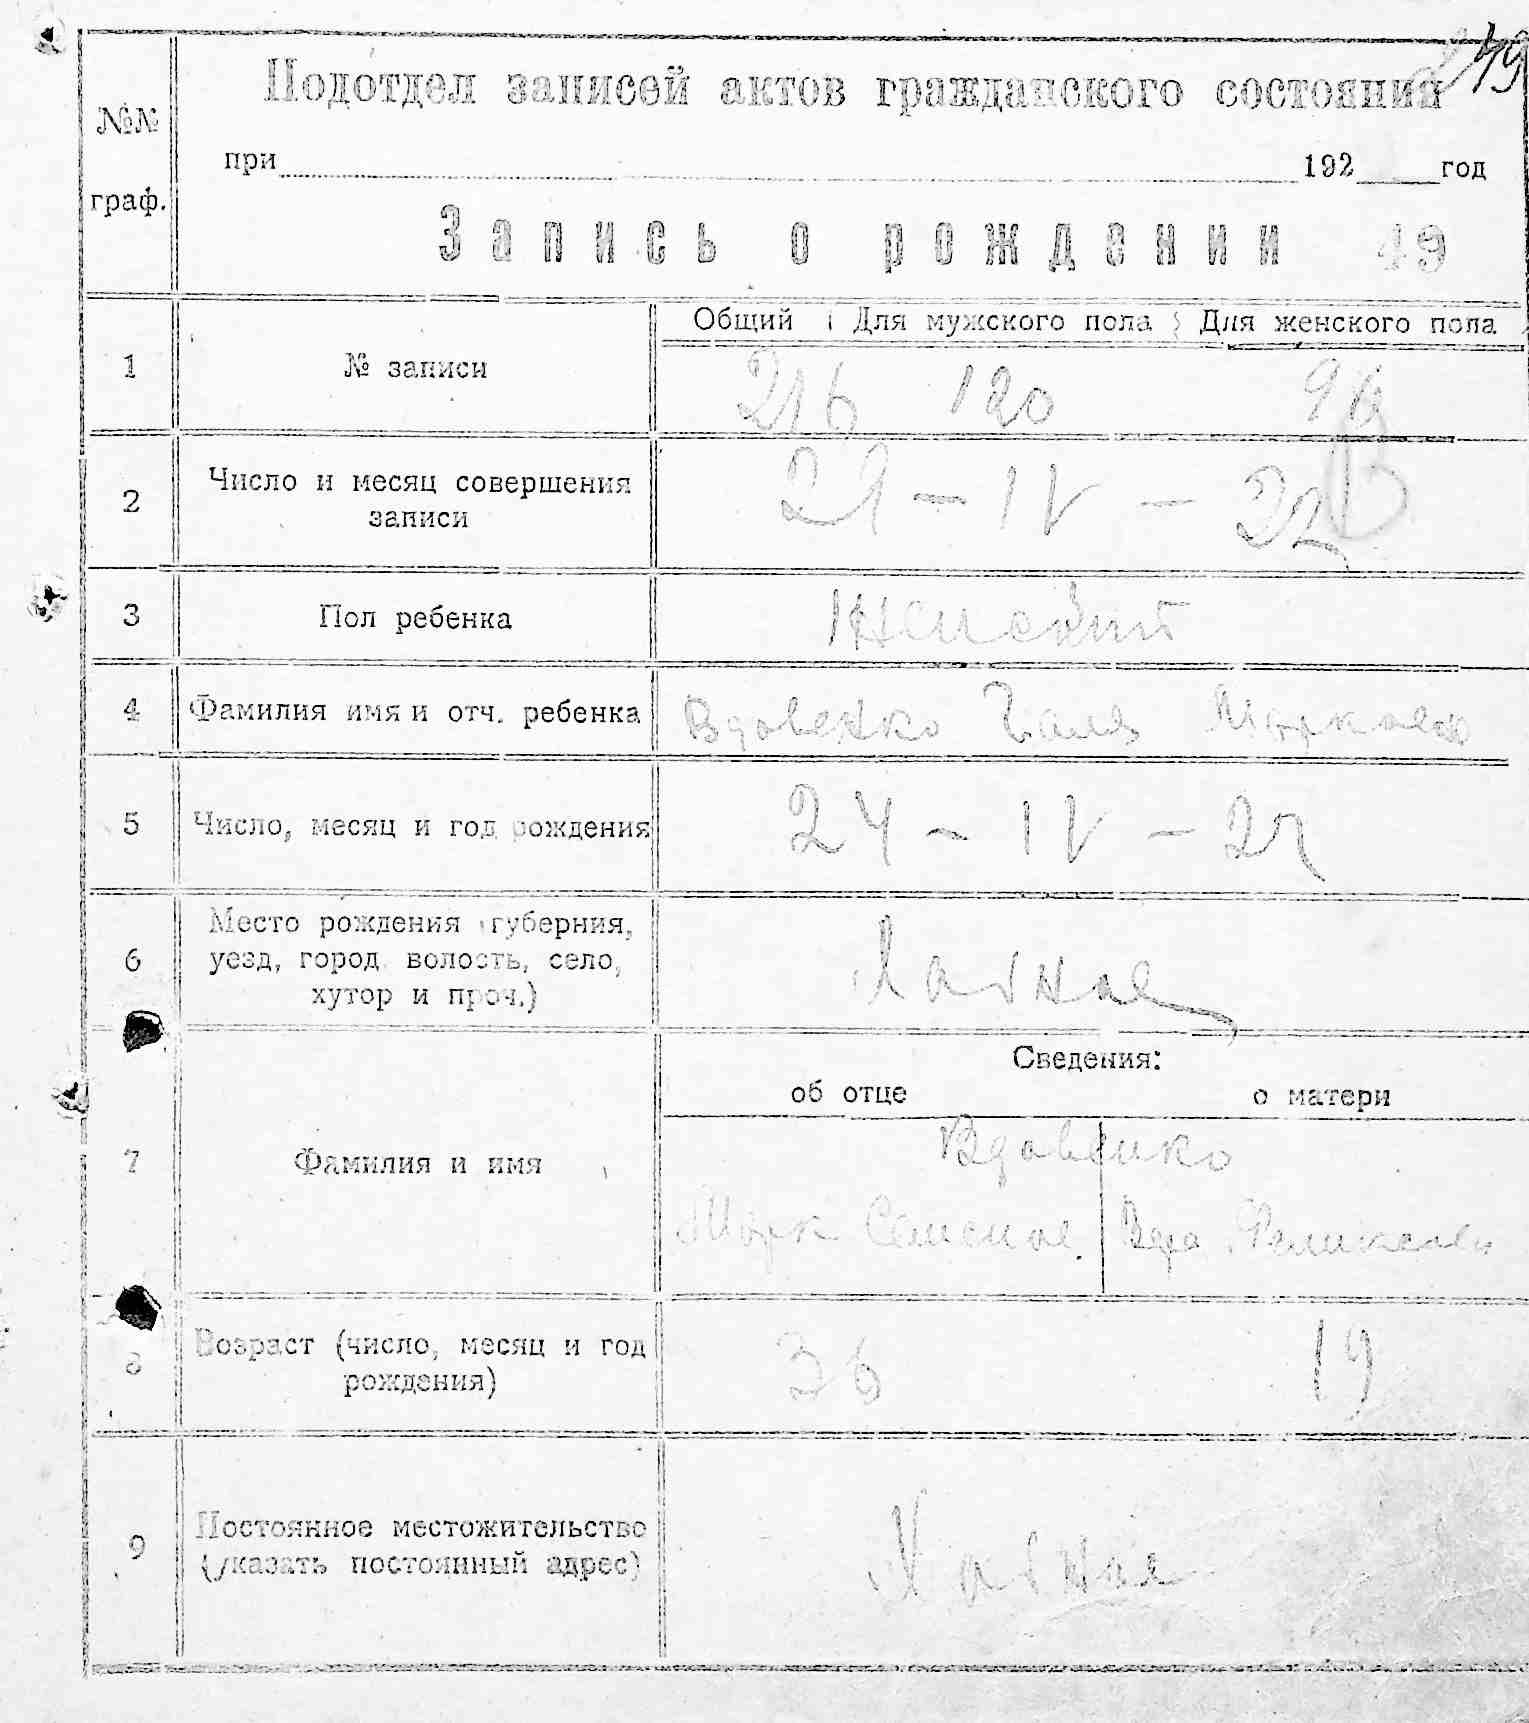 49
№№ граф.
Подотдел записей актов гражданского состояния
при 192 год
Запись о рождении 49
Общий Для мужского пола Для женского пола
1 № записи 216 120 96
2 Число и месяц совершения
записи
29 – IV – 22
3 Пол ребенка Женский
4 Фамилия имя и отч. ребенка Вдовенко Галя
5 Число, месяц и год рождения 24 – IV – 22
6 Место рождения губерния,
уезд, город, волость, село,
хутор и проч.)
Сведения:
об отце о матери
7 Фамилия и имя
Вдовенко
Марк Вера
8 Возраст (число, месяц и год
рождения)
36 19
9 Постоянное местожительство
(указать постоянный адрес)